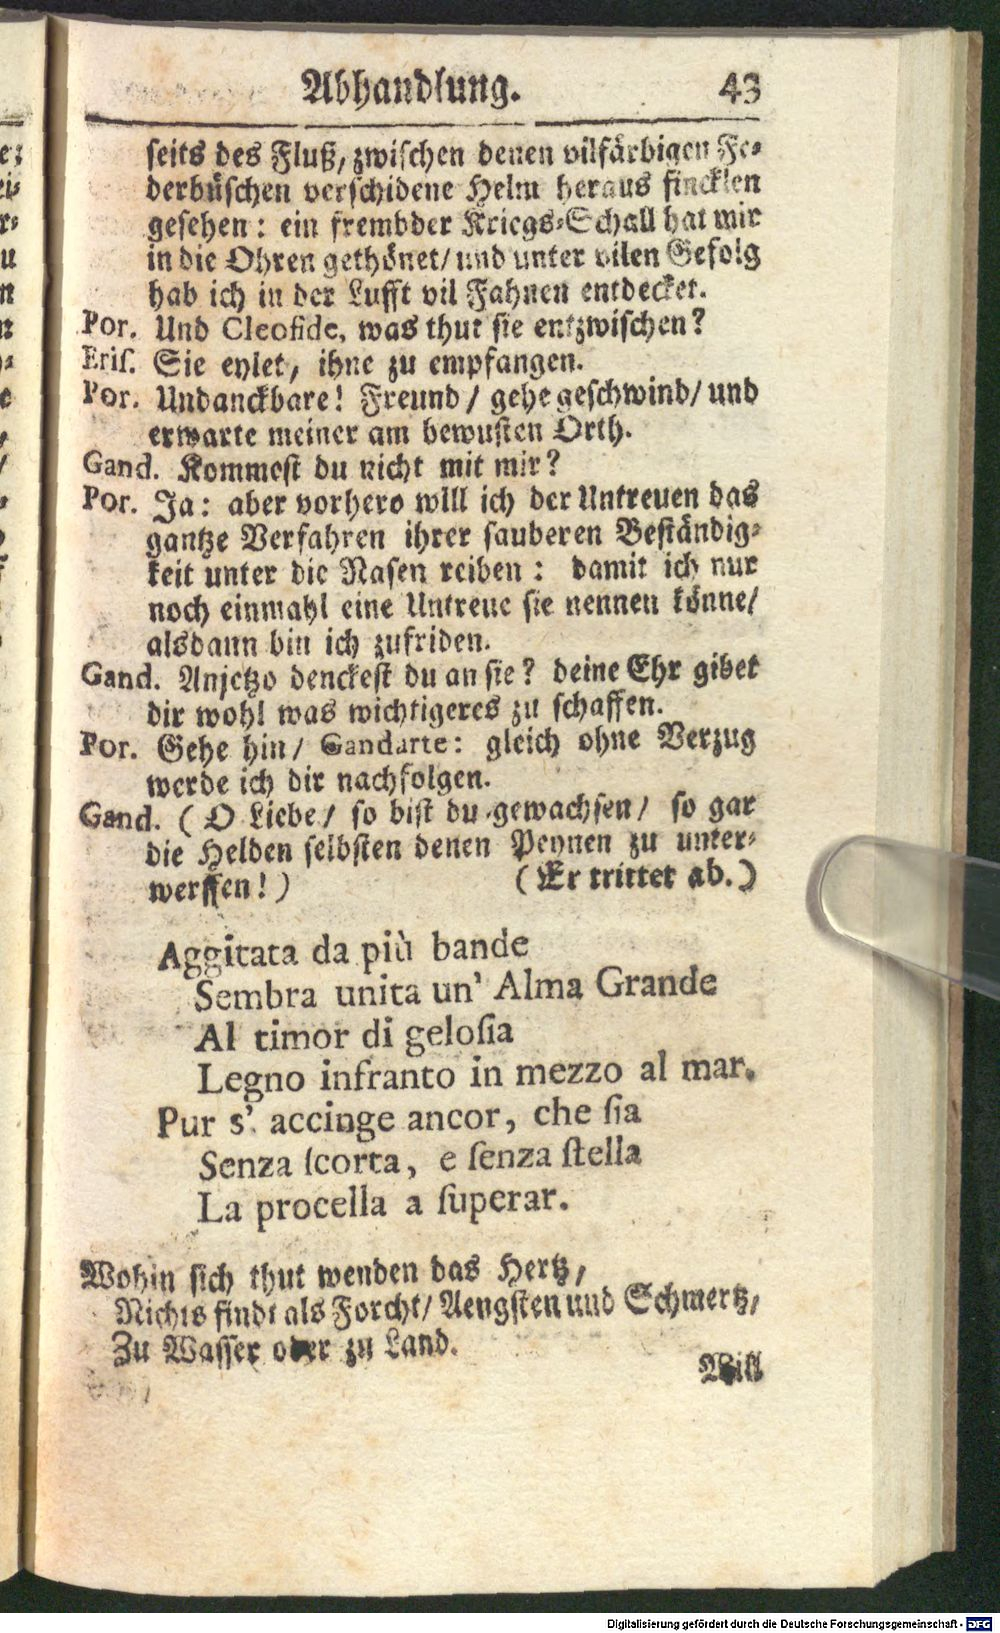 Abhandlung. 43
seits des Fluß/ zwischen denen vilfärbigen Fe-
derbüschen verschidene Helm heraus fincklen
gesehen: ein frembder Kriegs-Schall hat mir
in die Ohren gethönet/ und unter vilen Gefolg
hab ich in der Lufft vil Fahnen entdecket.
Por. Und Cleofide, was thut sie entzwischen?
Eris. Sie eylet, ihne zu empfangen.
Por. Undanckbare! Freund/ gehe geschwind/ und
erwarte meiner am bewusten Orth.
Gand. Kommest du nicht mit mir?
Por. Ja: aber vorhero will ich der Untreuen das
gantze Verfahren ihrer sauberen Beständig-
keit unter die Nasen reiben: damit ich nur
noch einmahl eine Untreue sie nennen könne/
alsdann bin ich zufriden.
Gand. Anjetzo denckest du an sie? deine Ehr gibet
dir wohl was wichtigeres zu schaffen.
Por. Gehe hin/ Gandarte: gleich ohne Verzug
werde ich dir nachfolgen.
Gand. (O Liebe/ so bist du gewachsen/ so gar
die Helden selbsten denen Peynen zu unter-
werffen!) (Er trittet ab.)
Aggitata da più bande
Sembra unita un' Alma Grande
Al timor di gelosia
Legno infranto in mezzo al mar.
Pur s' accinge ancor, che sia
Senza scorta, e senza stella
La procella a superar.
Wohin sich thut wenden das Hertz,
Nichts findt als Forcht/ Aengsten und Schmertz/
Zu Wasser oder zu Land.
Will
Digitalisierung gefördert durch die Deutsche Forschungsgemeinschaft - DFG